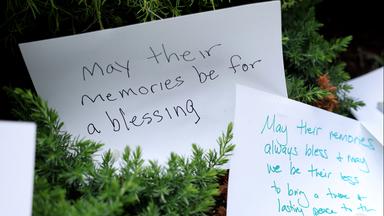 May their
memories be for
a blessing
May their memories
always bless & may
we be their
to bring a
lasting peace to